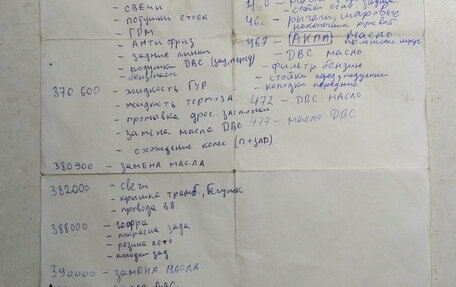 - свечи
- подушки стоек
- ГРМ
- Антифриз
- задние линки
- подушки ДВС (зад, перед)
370 600 - жидкость ГУР
- жидкость тормоза
- промывка дрос. заслонки
- замена масла ДВС
- схождение колес (п+зад)
380 900 - замена масла
382000 - свечи
- крышка трамб., бегунок
- провода ВВ
388000 - гофра
- покраска зада
- резина лето
- колодки зад
390.000 - замена масла
460 -
- стойки стаб. задние
462 - рычаги, шаровые
наконечник рулевой
467 - АКПП масло
- ДВС масло
- фильтр бензин
- стойки перед, подушки
- колодки передние
472 - ДВС масло
477 - масло ДВС